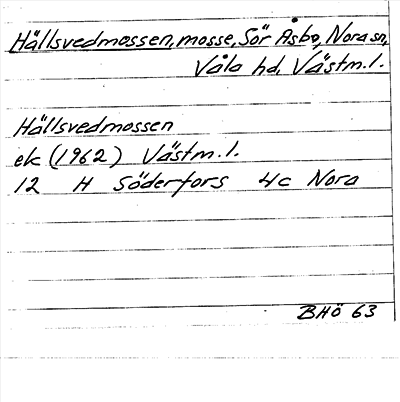 Hällsvedmossen, mosse, Sör Åsbo, Nora sn,
Våla hd, Västm. l.
Hällsvedmossen
ek (1962) Västm. l.
12 H Söderfors 4c Nora
BHÖ 63